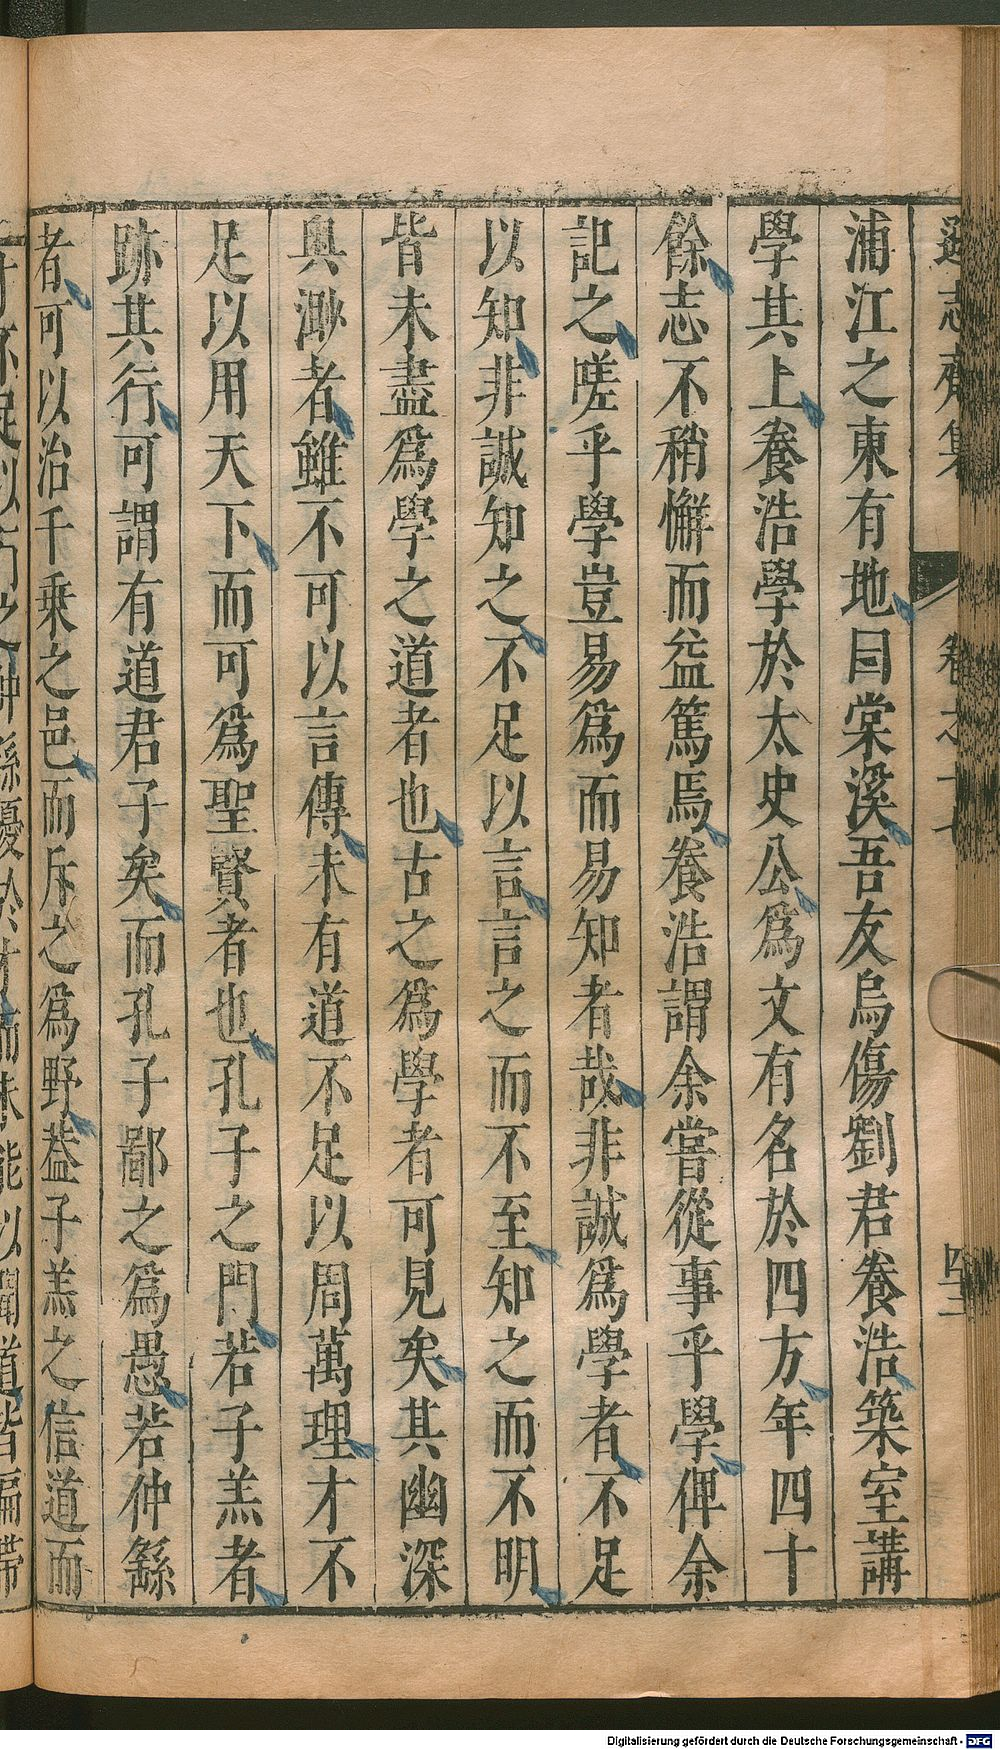 遜志齋集 卷之十七 四十二
浦江之東有地曰棠溪吾友烏傷劉君養浩築室講
學其上養浩學於太史公爲文有名於四方年四十
餘志不稍懈而益篤焉養浩謂余嘗從事乎學俾余
記之嗟乎學豈易爲而易知者哉非誠爲學者不足
以知非誠知之不足以言言之而不至知之而不明
皆未盡爲學之道者也古之爲學者可見矣其幽深
與渺者雖不可以言傳未有道不足以周萬理才不
足以用天下而可爲聖賢者也孔子之門若子羔者
跡其行可謂有道君子矣而孔子鄙之爲愚若仲繇
者可以治千乗之邑而斥之爲野葢子羔之信道而
Digitalisierung gefördert durch die Deutsche Forschungsgemeinschaft - DFG